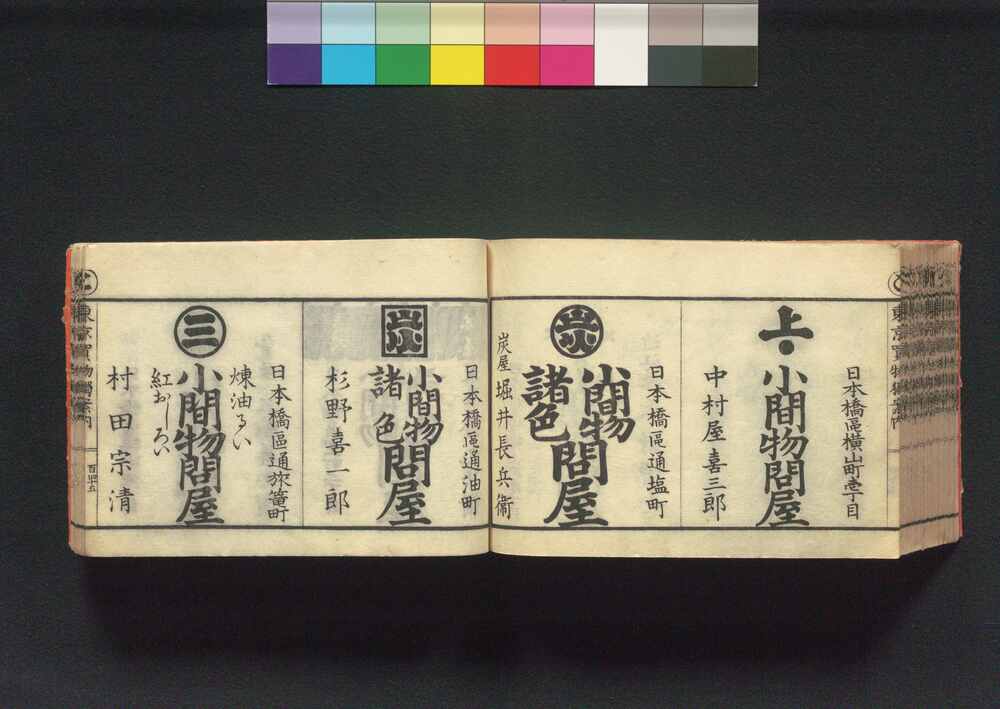 日本橋區橫山町壱丁目
上
小間物問屋
中村屋喜三郎
日本橋區通塩町
炭
小間物
諸色
問屋
炭屋堀井長兵衞
日本橋區通油町
炭
小間物
諸色
問屋
杉野喜一郎
日本橋區通旅篭町
煉油るい
三
小間物問屋
紅おしろい
村田宗清
東京買物獨案内
百四十五